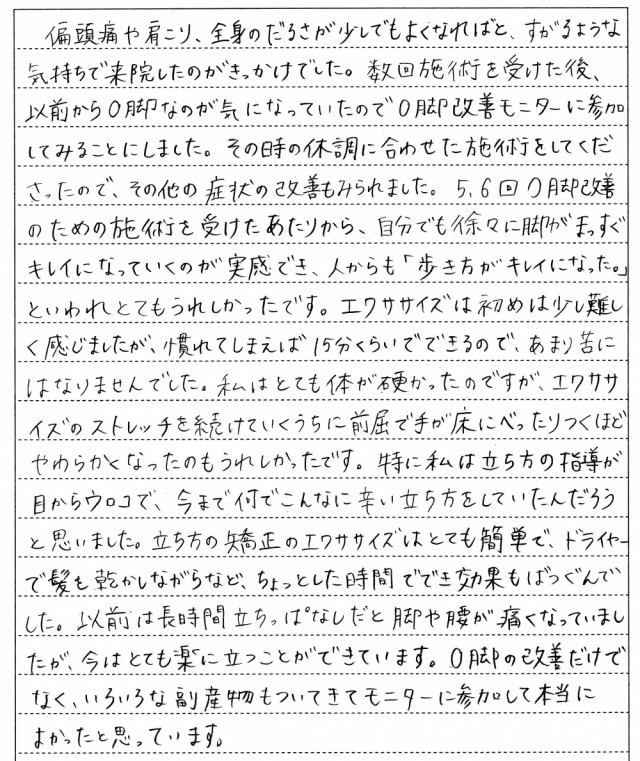 偏頭痛や肩こり、全身のだるさが少しでもよくなればと、すがるような
気持ちで来院したのがきっかけでした。数回施術を受けた後、
以前からO脚なのが気になっていたのでO脚改善モニターに参加
してみることにしました。その時の体調に合わせた施術をしてくだ
さったので、その他の症状の改善もみられました。5、6回O脚改善
のための施術を受けたあたりから、自分でも徐々に脚がまっすぐ
キレイになっていくのが実感でき、人からも「歩き方がキレイになった。」
といわれとてもうれしかったです。エクササイズは初めは少し難し
く感じましたが、慣れてしまえば15分くらいでできるので、あまり苦に
はなりませんでした。私はとても体が硬かったのですが、エクササ
イズのストレッチを続けていくうちに前屈で手が床にべったりつくほど
やわらかくなったのもうれしかったです。特に私は立ち方の指導が
目からウロコで、今まで何でこんなに辛い立ち方をしていたんだろう
と思いました。立ち方の矯正のエクササイズはとても簡単で、ドライヤー
で髪を乾かしながらなど、ちょっとした時間ででき効果もばつぐんで
した。以前は長時間立ちっぱなしだと脚や腰が痛くなっていまし
たが、今はとても楽に立つことができています。O脚の改善だけで
なく、いろいろな副産物もついてきてモニターに参加して本当に
よかったと思っています。